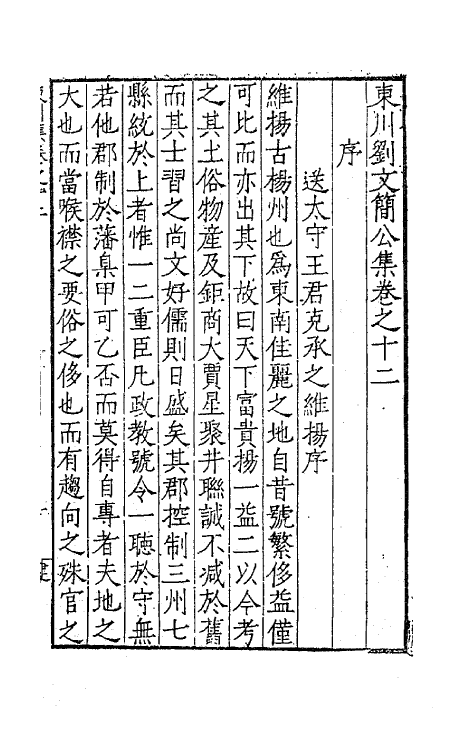 東川劉文簡公集卷之十二
序
送太守王君克承之維揚序
維揚古楊州也爲東南佳麗之地自昔號繁侈益僅
可比而亦出其下故曰天下富貴揚一益二以今考
之其土俗物產及鉅商大賈星聚井聯誠不减於舊
而其士習之尚文好儒則日盛矣其郡控制三州七
縣統於上者惟一二重臣凡政教號令一聴於守無
若他郡制於藩臬甲可乙否而莫得自專者夫地之
大也而當喉襟之要俗之侈也而有趨向之殊官之